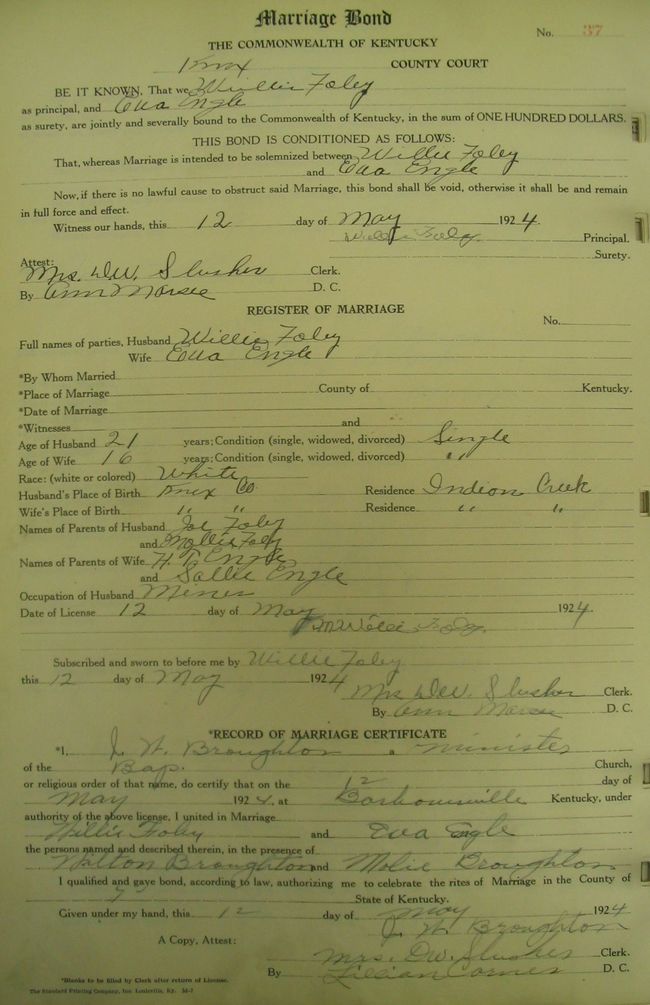 Marriage Bond
No. 37
THE COMMONWEALTH OF KENTUCKY
Knox COUNTY COURT
BE IT KNOWN, That we Willie Foley
as principal, and Eva Engle
as surety, are jointly and severally bound to the Commonwealth of Kentucky, in the sum of ONE HUNDRED DOLLARS.
THIS BOND IS CONDITIONED AS FOLLOWS:
That, whereas Marriage is intended to be solemnized between Willie Foley
and Eva Engle
Now, if there is no lawful cause to obstruct said Marriage, this bond shall be void, otherwise it shall be and remain
in full force and effect.
Witness our hands, this 12 day of May 1924.
Willie Foley Principal.
Surety.
Attest:
Mrs. D.W. Slusher Clerk.
By Ann D. C.
REGISTER OF MARRIAGE
No.
Full names of parties, Husband Willie Foley
Wife Eva Engle
*By Whom Married
*Place of Marriage County of Kentucky.
*Date of Marriage
*Witnesses and
Age of Husband 21 years; Condition (single, widowed, divorced) Single
Age of Wife 16 years; Condition (single, widowed, divorced) "
Race: (white or colored) White
Husband's Place of Birth Knox Co Residence Indian Creek
Wife's Place of Birth " " Residence " "
Names of Parents of Husband Joe Foley
and Mollie Foley
Names of Parents of Wife H. Engle
and Sallie Engle
Occupation of Husband Miner
Date of License 12 day of May 1924.
Willie Foley
Subscribed and sworn to before me by Willie Foley
this 12 day of May 1924
Mrs D.W. Slusher Clerk.
By Ann D. C.
*RECORD OF MARRIAGE CERTIFICATE
*I, J. H. Broughton a minister
of the Bap. Church,
or religious order of that name, do certify that on the 12 day of
May 1924, at Barbourville Kentucky, under
authority of the above license, I united in Marriage
Willis Foley and Eva Engle
the persons named and described therein, in the presence of
Walton Broughton and Molie Broughton
I qualified and gave bond, according to law, authorizing me to celebrate the rites of Marriage in the County of
State of Kentucky.
Given under my hand, this 12 day of May 1924
J. H. Broughton
A Copy, Attest:
Mrs. D.W. Slusher Clerk.
By Lillian D. C.
*Blanks to be filled by Clerk after return of License.
The Standard Printing Company, Inc. Louisville, Ky.